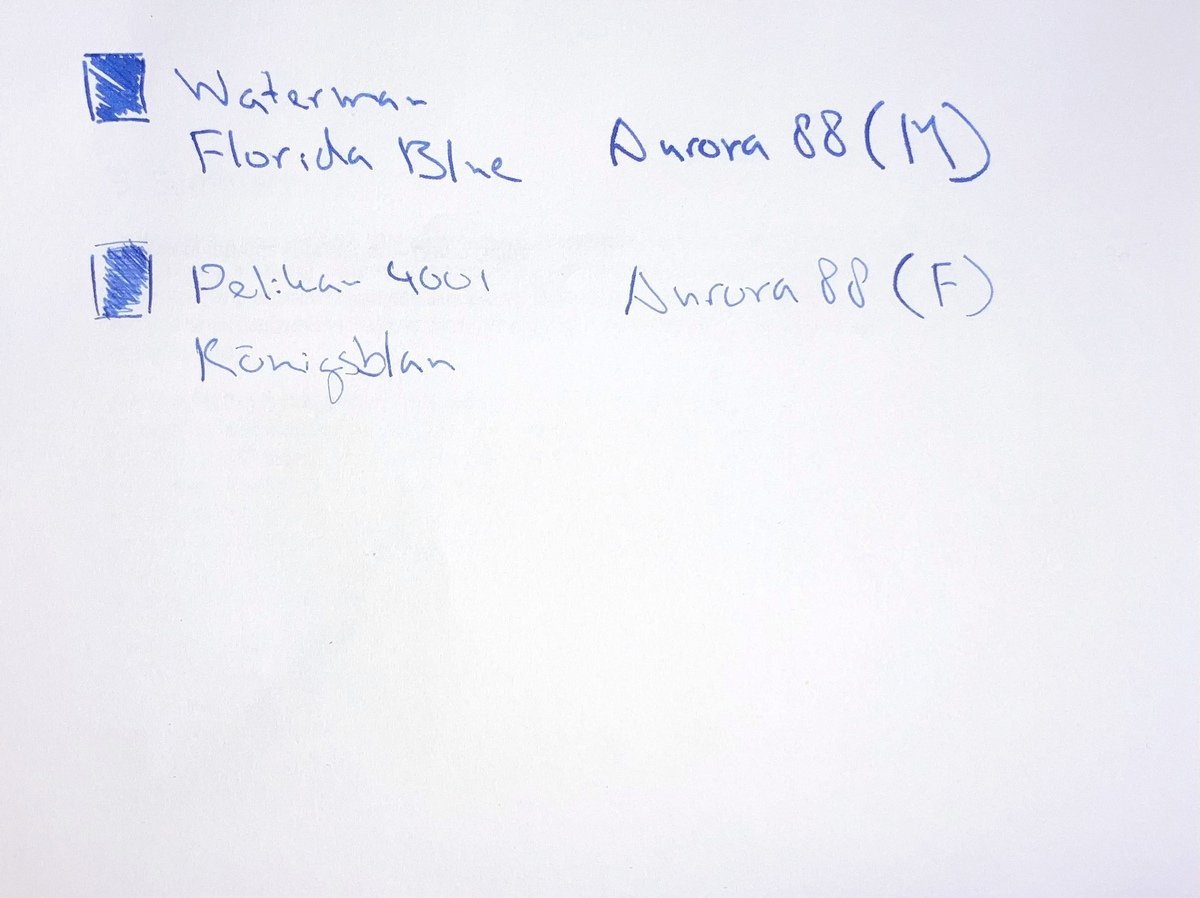 Waterman
Florida Blue
Aurora 88 (M)
Pelikan 4001
Königsblau
Aurora 88 (F)